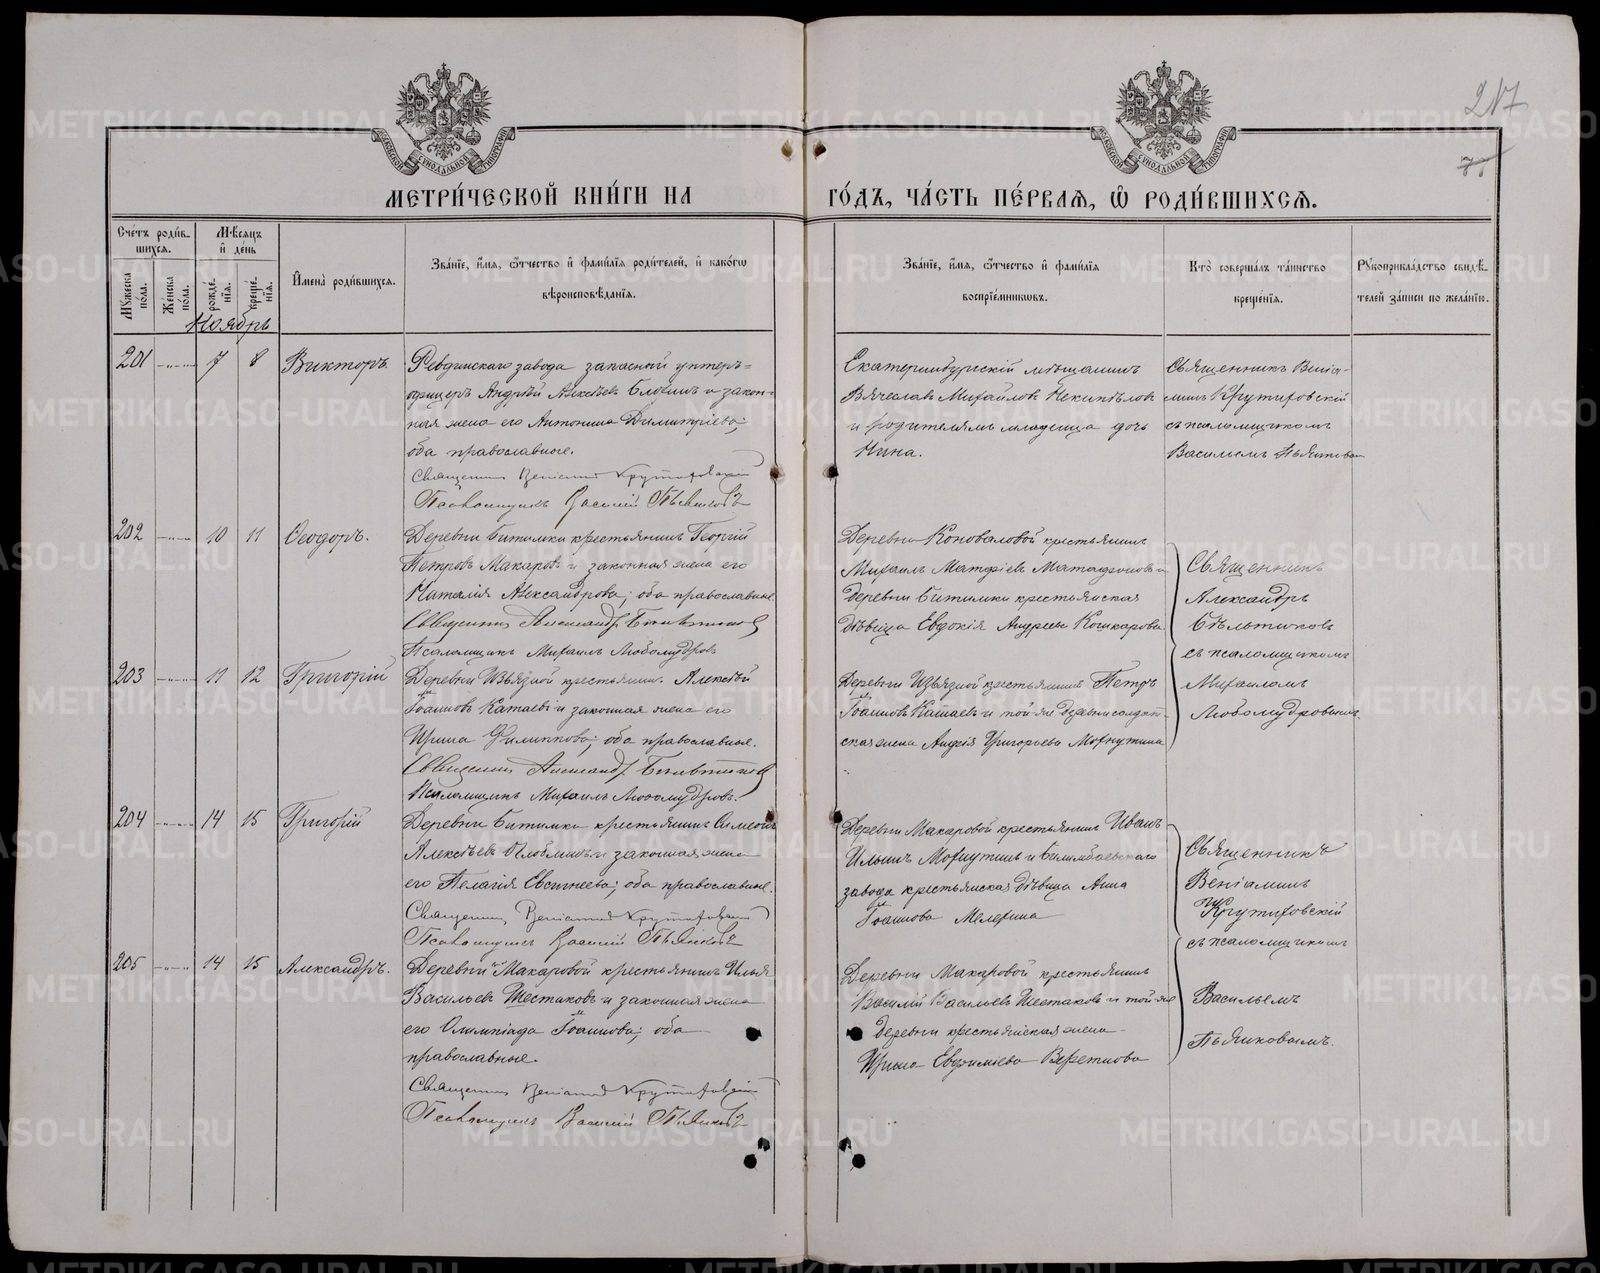 217
МОСКОВСКОЙ СѴНОДАЛЬНОЙ ТИПОГРАФІИ
МОСКОВСКОЙ СѴНОДАЛЬНОЙ ТИПОГРАФІИ
МЕТРИ́ЧЕСКОЙ КНИ́ГИ НА
ГО́ДЪ, ЧА́СТЬ ПЕ́РВАѦ, Ѡ҆ РОДИ́ВШИХСѦ.
Сче́тъ роди́в-
шихся.
Мѣ́сяцъ
и҆ де́нь
Мꙋ́жеска
по́ла.
Же́нска
по́ла.
рожде́-
нїѧ.
креще́-
нїѧ.
И҆мена̀ роди́вшихсѧ.
Зва́нїе, и҆́мѧ, ѻ҆́тчество и҆ фами́лїѧ роди́телей, и҆ како́гѡ
вѣроисповѣ́данїѧ.
Зва́нїе, и҆́мѧ, ѻ҆́тчество и҆ фами́лїѧ
воспрїе́мникѡвъ.
Кто̀ соверша́лъ та́инство
креще́нїѧ.
Рꙋкоприкла́дство свидѣ́-
телей за́писи по жела́нїю.
Ноябрь
201 7 8 Викторъ.
Ревдинскаго завода запасной унтеръ-
офицеръ Андрей Алексѣевъ и закон-
ная жена его Антонина Димитріева;
оба православные.
Священникъ Веніаминъ Крутиховскій
Псаломщикъ Василій Пьянковъ
Екатеринбургскій мѣщанинъ
Вячеславъ Михайловъ Некипѣловъ
и родителямъ младенца дочь
Нина.
Священникъ Веніа-
минъ Крутиховскій
съ псаломщикомъ
Василіемъ Пьянковы
202 10 11 Ѳеодоръ.
Деревни Битимки крестьянинъ Георгій
Петровъ Макаровъ и законная жена его
Наталія Александрова; оба православные.
Священникъ Александръ Бѣльтиковъ
Псаломщикъ Михаилъ Любомудровъ
Деревни Коноваловой крестьянинъ
Михаилъ Матфіевъ и
деревни Битимки крестьянская
дѣвица Евдокія Андреева Кошкарова
Священникъ
Александръ
Бѣльтиковъ
съ псаломщикомъ
Михаиломъ
Любомудровымъ.
203 11 12 Григорій
Деревни Извѣздной крестьянинъ Алексѣй
Іоанновъ Катаевъ и законная жена его
Ирина Филиппова; оба православные.
Священникъ Александръ Бѣльтиковъ
Псаломщикъ Михаилъ Любомудровъ.
Деревни Извѣздной крестьянинъ Петръ
Іоанновъ Катаевъ и той же деревни солдат-
ская жена Григорьева Мохнуткина
204 14 15 Григорій
Деревни Битимки крестьянинъ Симеонъ
Алексѣевъ и законная жена
его Пелагія Евсигнеева; оба православные.
Священникъ Веніаминъ Крутиховскій
Псаломщикъ Василій Пьянковъ
Деревни Макаровой крестьянинъ Иванъ
Ильинъ и Билимбаевскаго
завода крестьянская дѣвица Анна
Іоаннова Мелехина
Священникъ
Веніаминъ
Крутиховскій
съ псаломщикомъ
Васильемъ
Пьянковымъ.
205 14 15 Александръ.
Деревни Макаровой крестьянинъ Илья
Васильевъ Шестаковъ и законная жена
его Олимпіада Іоаннова; оба
православные.
Священникъ Веніаминъ Крутиховскій
Псаломщикъ Василій Пьянковъ
Деревни Макаровой крестьянинъ
Василій Васильевъ Шестаковъ и той же
деревни крестьянская жена
Ирина Евфиміева Веретнова
METRIKI.GASO-URAL.RU